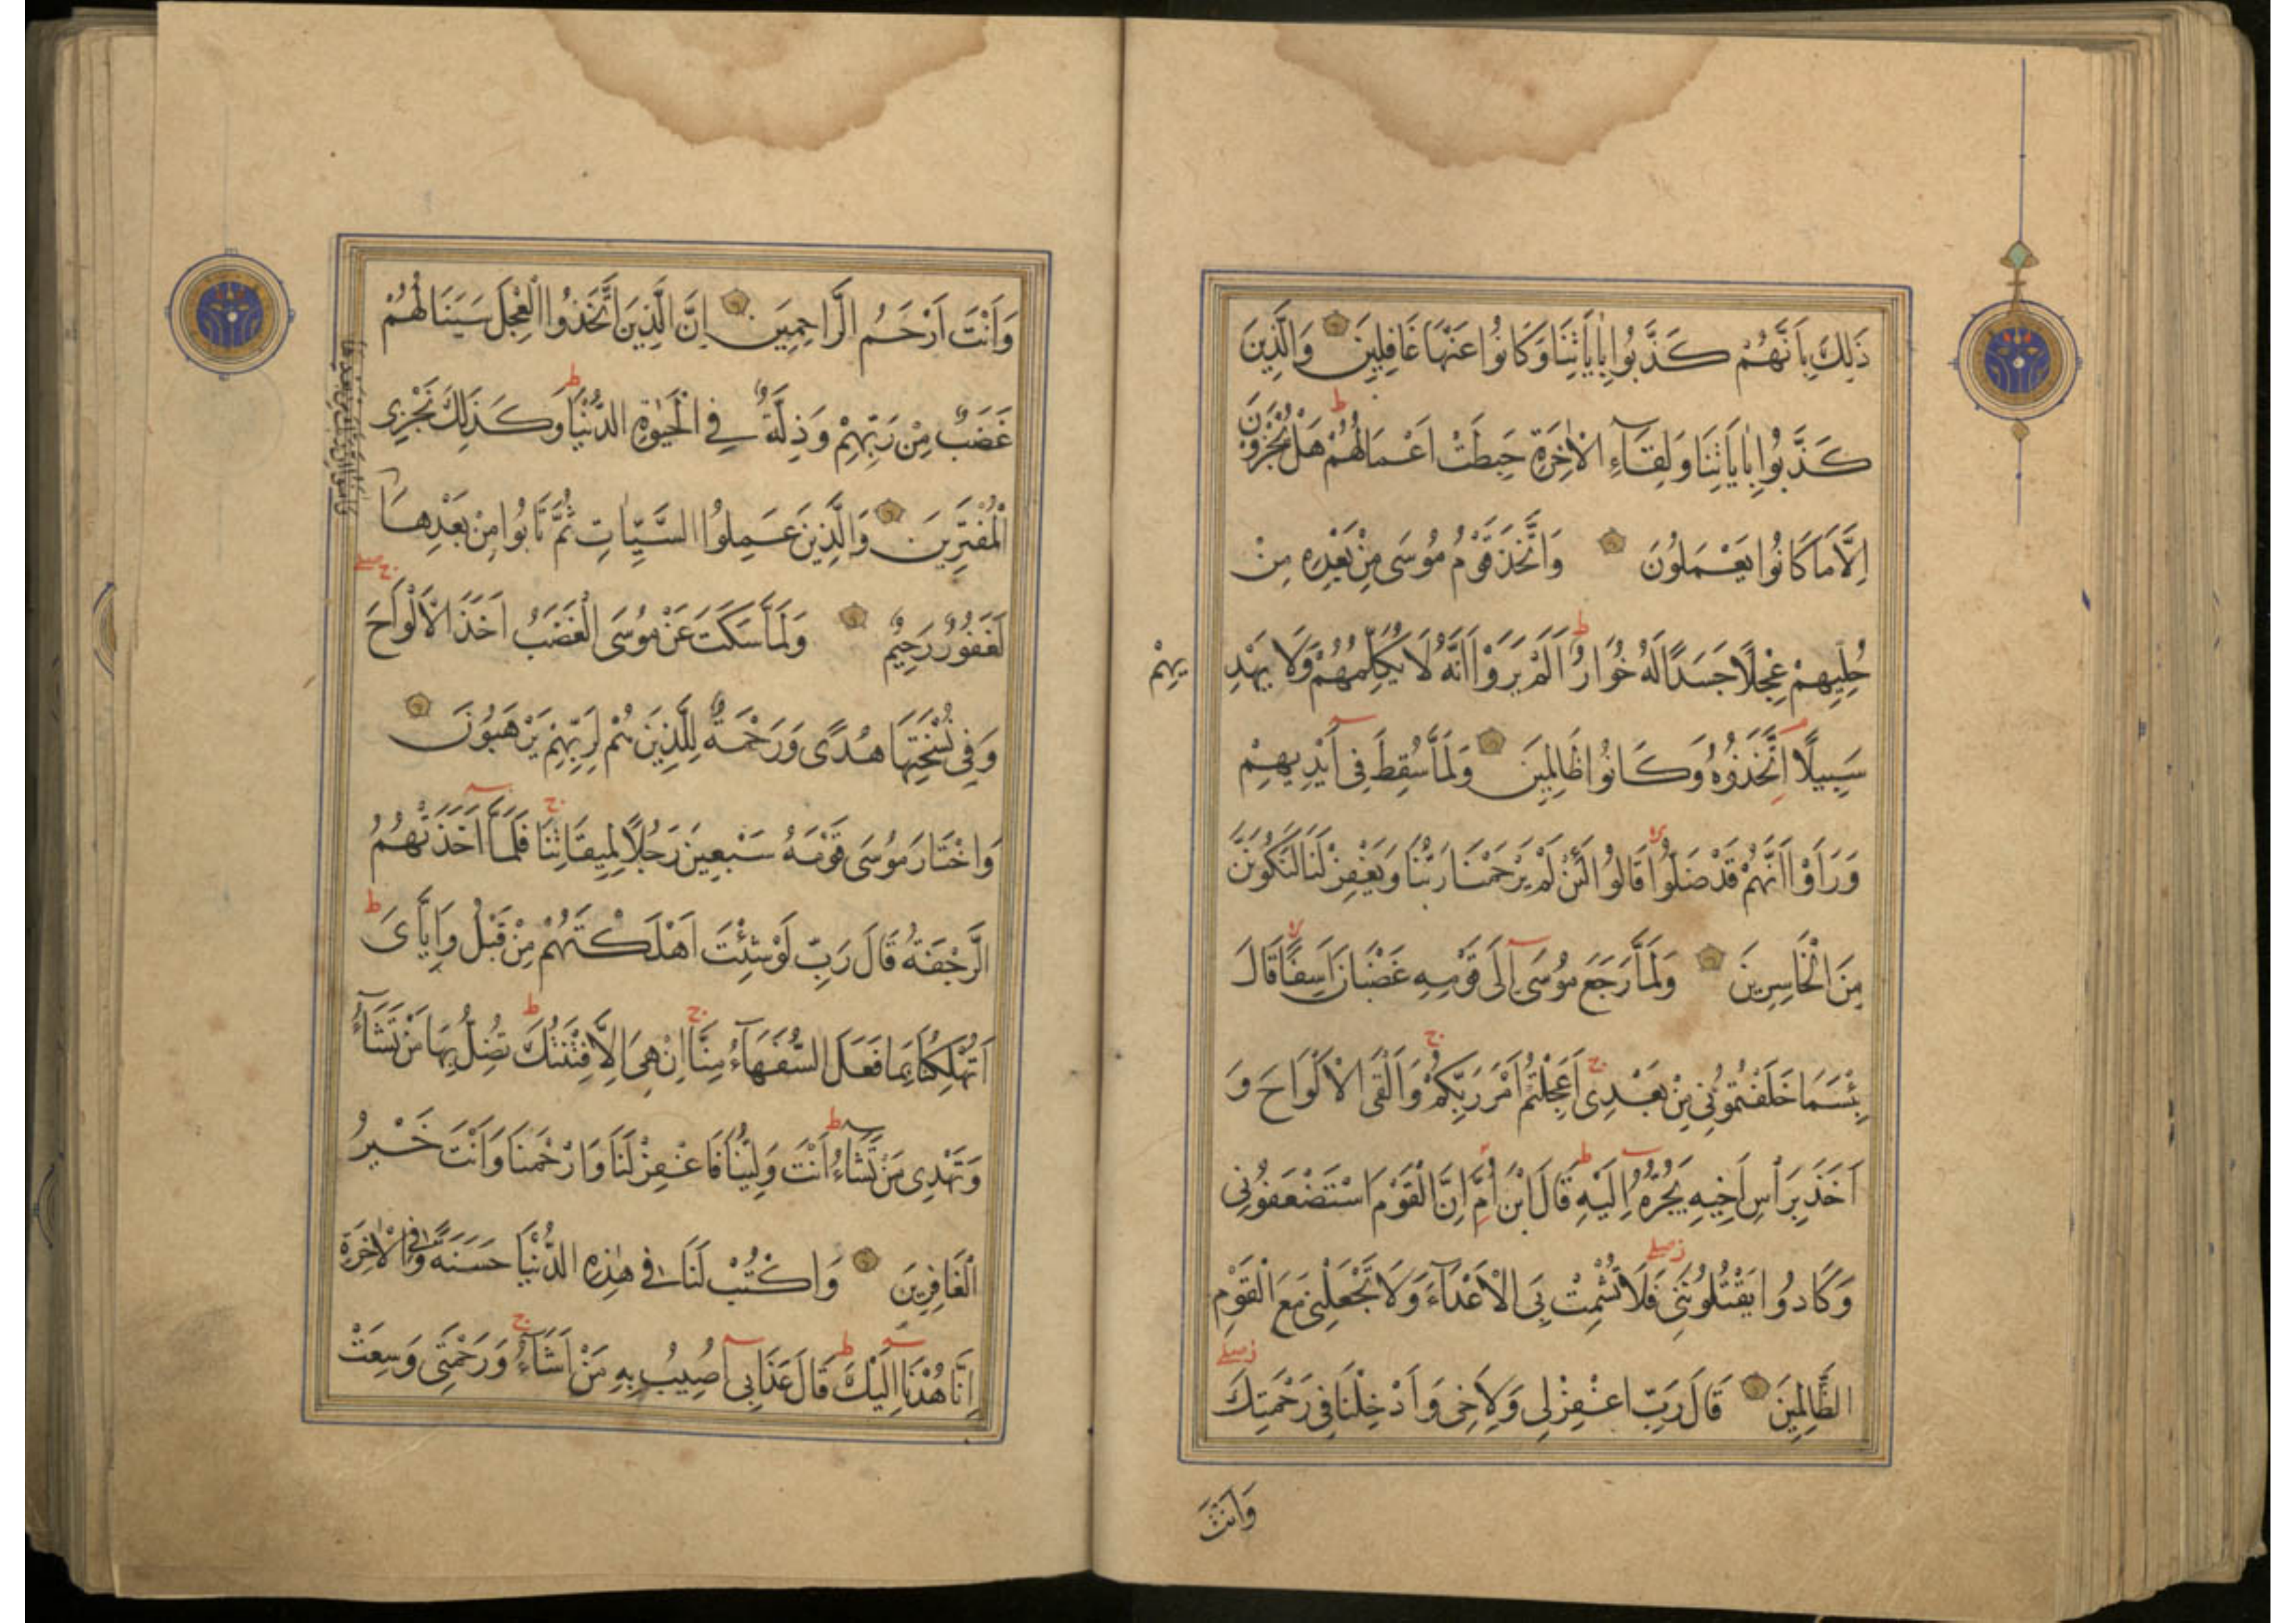 ذَلِكَ بِاَنَّهُمْ كَذَّبُوا بِاٰيَاتِنَا وَكَانُوا عَنْهَا غَافِلِينَ وَالَّذِينَ
كَذَّبُوا بِاٰيَاتِنَا وَلِقَآءِ الْاٰخِرَةِ حَبِطَتْ اَعْمَالُهُمْ هَلْ يُجْزَوْنَ
اِلَّا مَا كَانُوا يَعْمَلُونَ وَاتَّخَذَ قَوْمُ مُوسَى مِنْ بَعْدِهِ مِنْ
حُلِيِّهِمْ عِجْلًا جَسَدًا لَهُ خُوَارٌ اَلَمْ يَرَوْا اَنَّهُ لَا يُكَلِّمُهُمْ وَلَا يَهْدِ
يهِمْ
سَبِيلًا اِتَّخَذُوهُ وَكَانُوا ظَالِمِينَ وَلَمَّا سُقِطَ فِى اَيْدِيهِمْ
وَرَاَوْا اَنَّهُمْ قَدْ ضَلُّوا قَالُوا لَئِنْ لَمْ يَرْحَمْنَا رَبُّنَا وَيَغْفِرْ لَنَا لَنَكُونَنَّ
مِنَ الْخَاسِرِينَ وَلَمَّا رَجَعَ مُوسَى اِلَى قَوْمِهِ غَضْبَانَ اَسِفًا قَالَ
بِئْسَمَا خَلَفْتُمُونِى مِنْ بَعْدِى اَعَجِلْتُمْ اَمْرَ رَبِّكُمْ وَاَلْقَى الْاَلْوَاحَ وَ
اَخَذَ بِرَاْسِ اَخِيهِ يَجُرُّهُ اِلَيْهِ قَالَ ابْنَ اُمَّ اِنَّ الْقَوْمَ اسْتَضْعَفُونِى
وَكَادُوا يَقْتُلُونَنِى فَلَا تُشْمِتْ بِىَ الْاَعْدَآءَ وَلَا تَجْعَلْنِى مَعَ الْقَوْمِ
الظَّالِمِينَ قَالَ رَبِّ اغْفِرْ لِى وَلِاَخِى وَاَدْخِلْنَا فِى رَحْمَتِكَ
وَاَنْتَ
وَاَنْتَ اَرْحَمُ الرَّاحِمِينَ اِنَّ الَّذِينَ اتَّخَذُوا الْعِجْلَ سَيَنَالُهُمْ
غَضَبٌ مِنْ رَبِّهِمْ وَذِلَّةٌ فِى الْحَيٰوةِ الدُّنْيَا وَكَذَلِكَ نَجْزِى
الْمُفْتَرِينَ وَالَّذِينَ عَمِلُوا السَّيِّاٰتِ ثُمَّ تَابُوا مِنْ بَعْدِهَا
لَغَفُورٌ رَحِيمٌ وَلَمَّا سَكَتَ عَنْ مُوسَى الْغَضَبُ اَخَذَ الْاَلْوَاحَ
وَفِى نُسْخَتِهَا هُدًى وَرَحْمَةٌ لِلَّذِينَ هُمْ لِرَبِّهِمْ يَرْهَبُونَ
وَاخْتَارَ مُوسَى قَوْمَهُ سَبْعِينَ رَجُلًا لِمِيقَاتِنَا فَلَمَّا اَخَذَتْهُمُ
الرَّجْفَةُ قَالَ رَبِّ لَوْ شِئْتَ اَهْلَكْتَهُمْ مِنْ قَبْلُ وَاِيَّاىَ
اَتُهْلِكُنَا بِمَا فَعَلَ السُّفَهَآءُ مِنَّا اِنْ هِىَ اِلَّا فِتْنَتُكَ تُضِلُّ بِهَا مَنْ تَشَآءُ
وَتَهْدِى مَنْ تَشَآءُ اَنْتَ وَلِيُّنَا فَاغْفِرْ لَنَا وَارْحَمْنَا وَاَنْتَ خَيْرُ
الْغَافِرِينَ وَاكْتُبْ لَنَا فِى هٰذِهِ الدُّنْيَا حَسَنَةً وَفِى الْاٰخِرَةِ
اِنَّا هُدْنَا اِلَيْكَ قَالَ عَذَابِى اُصِيبُ بِهِ مَنْ اَشَآءُ وَرَحْمَتِى وَسِعَتْ